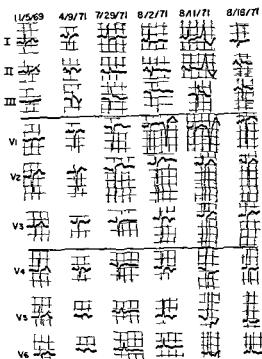 11/5/69 4/9/71 7/29/71 8/2/71 8/11/71 8/18/71
I
II
III
V1
V2
V3
V4
V5
V6